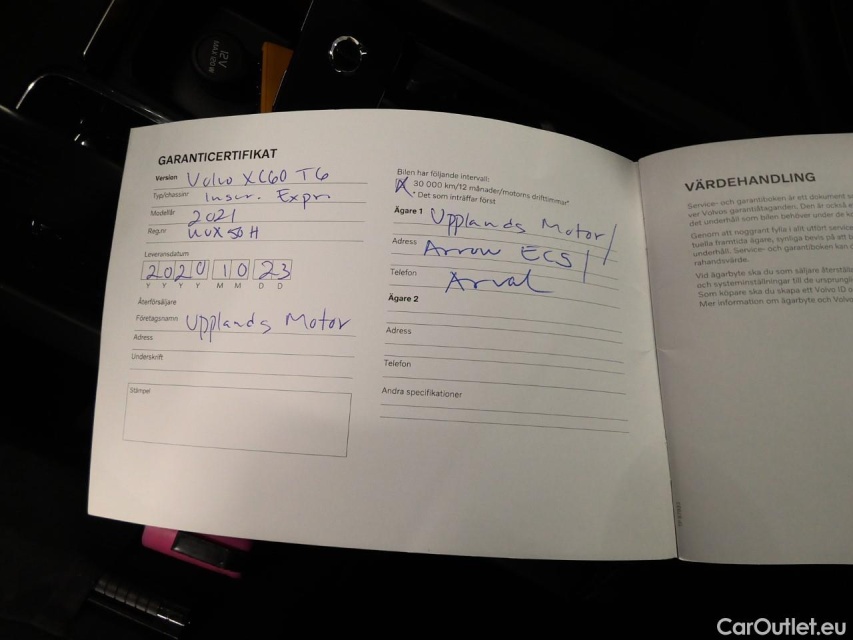 12V
MAX 120W
GARANTICERTIFIKAT
Version Volvo XC60 T6
Typ/chassinr Inscr. Expr.
Modellår 2021
Reg.nr
Leveransdatum
2020 10 23
Y Y Y Y M M D D
Återförsäljare
Företagsnamn Upplands Motor
Adress
Underskrift
Stämpel
Bilen har följande intervall:
X 30 000 km/12 månader/motorns drifttimmar*
* Det som inträffar först
Ägare 1 Upplands Motor/
Adress Arrow ECS/
Telefon Arval
Ägare 2
Adress
Telefon
Andra specifikationer
VÄRDEHANDLING
Service- och garantiboken är ett dokument
ver Volvos garantiåtaganden. Den är också
det underhåll som bilen behöver under de
Genom att noggrant fylla i allt utfört service
tuella framtida ägare, synliga bevis på att
underhåll. Service- och garantiboken kan
rahandsvärde.
Vid ägarbyte ska du som säljare återställa
och systeminställningar till de ursprungli
Som köpare ska du skapa ett Volvo ID o
Mer information om ägarbyte och Volvo
CarOutlet.eu